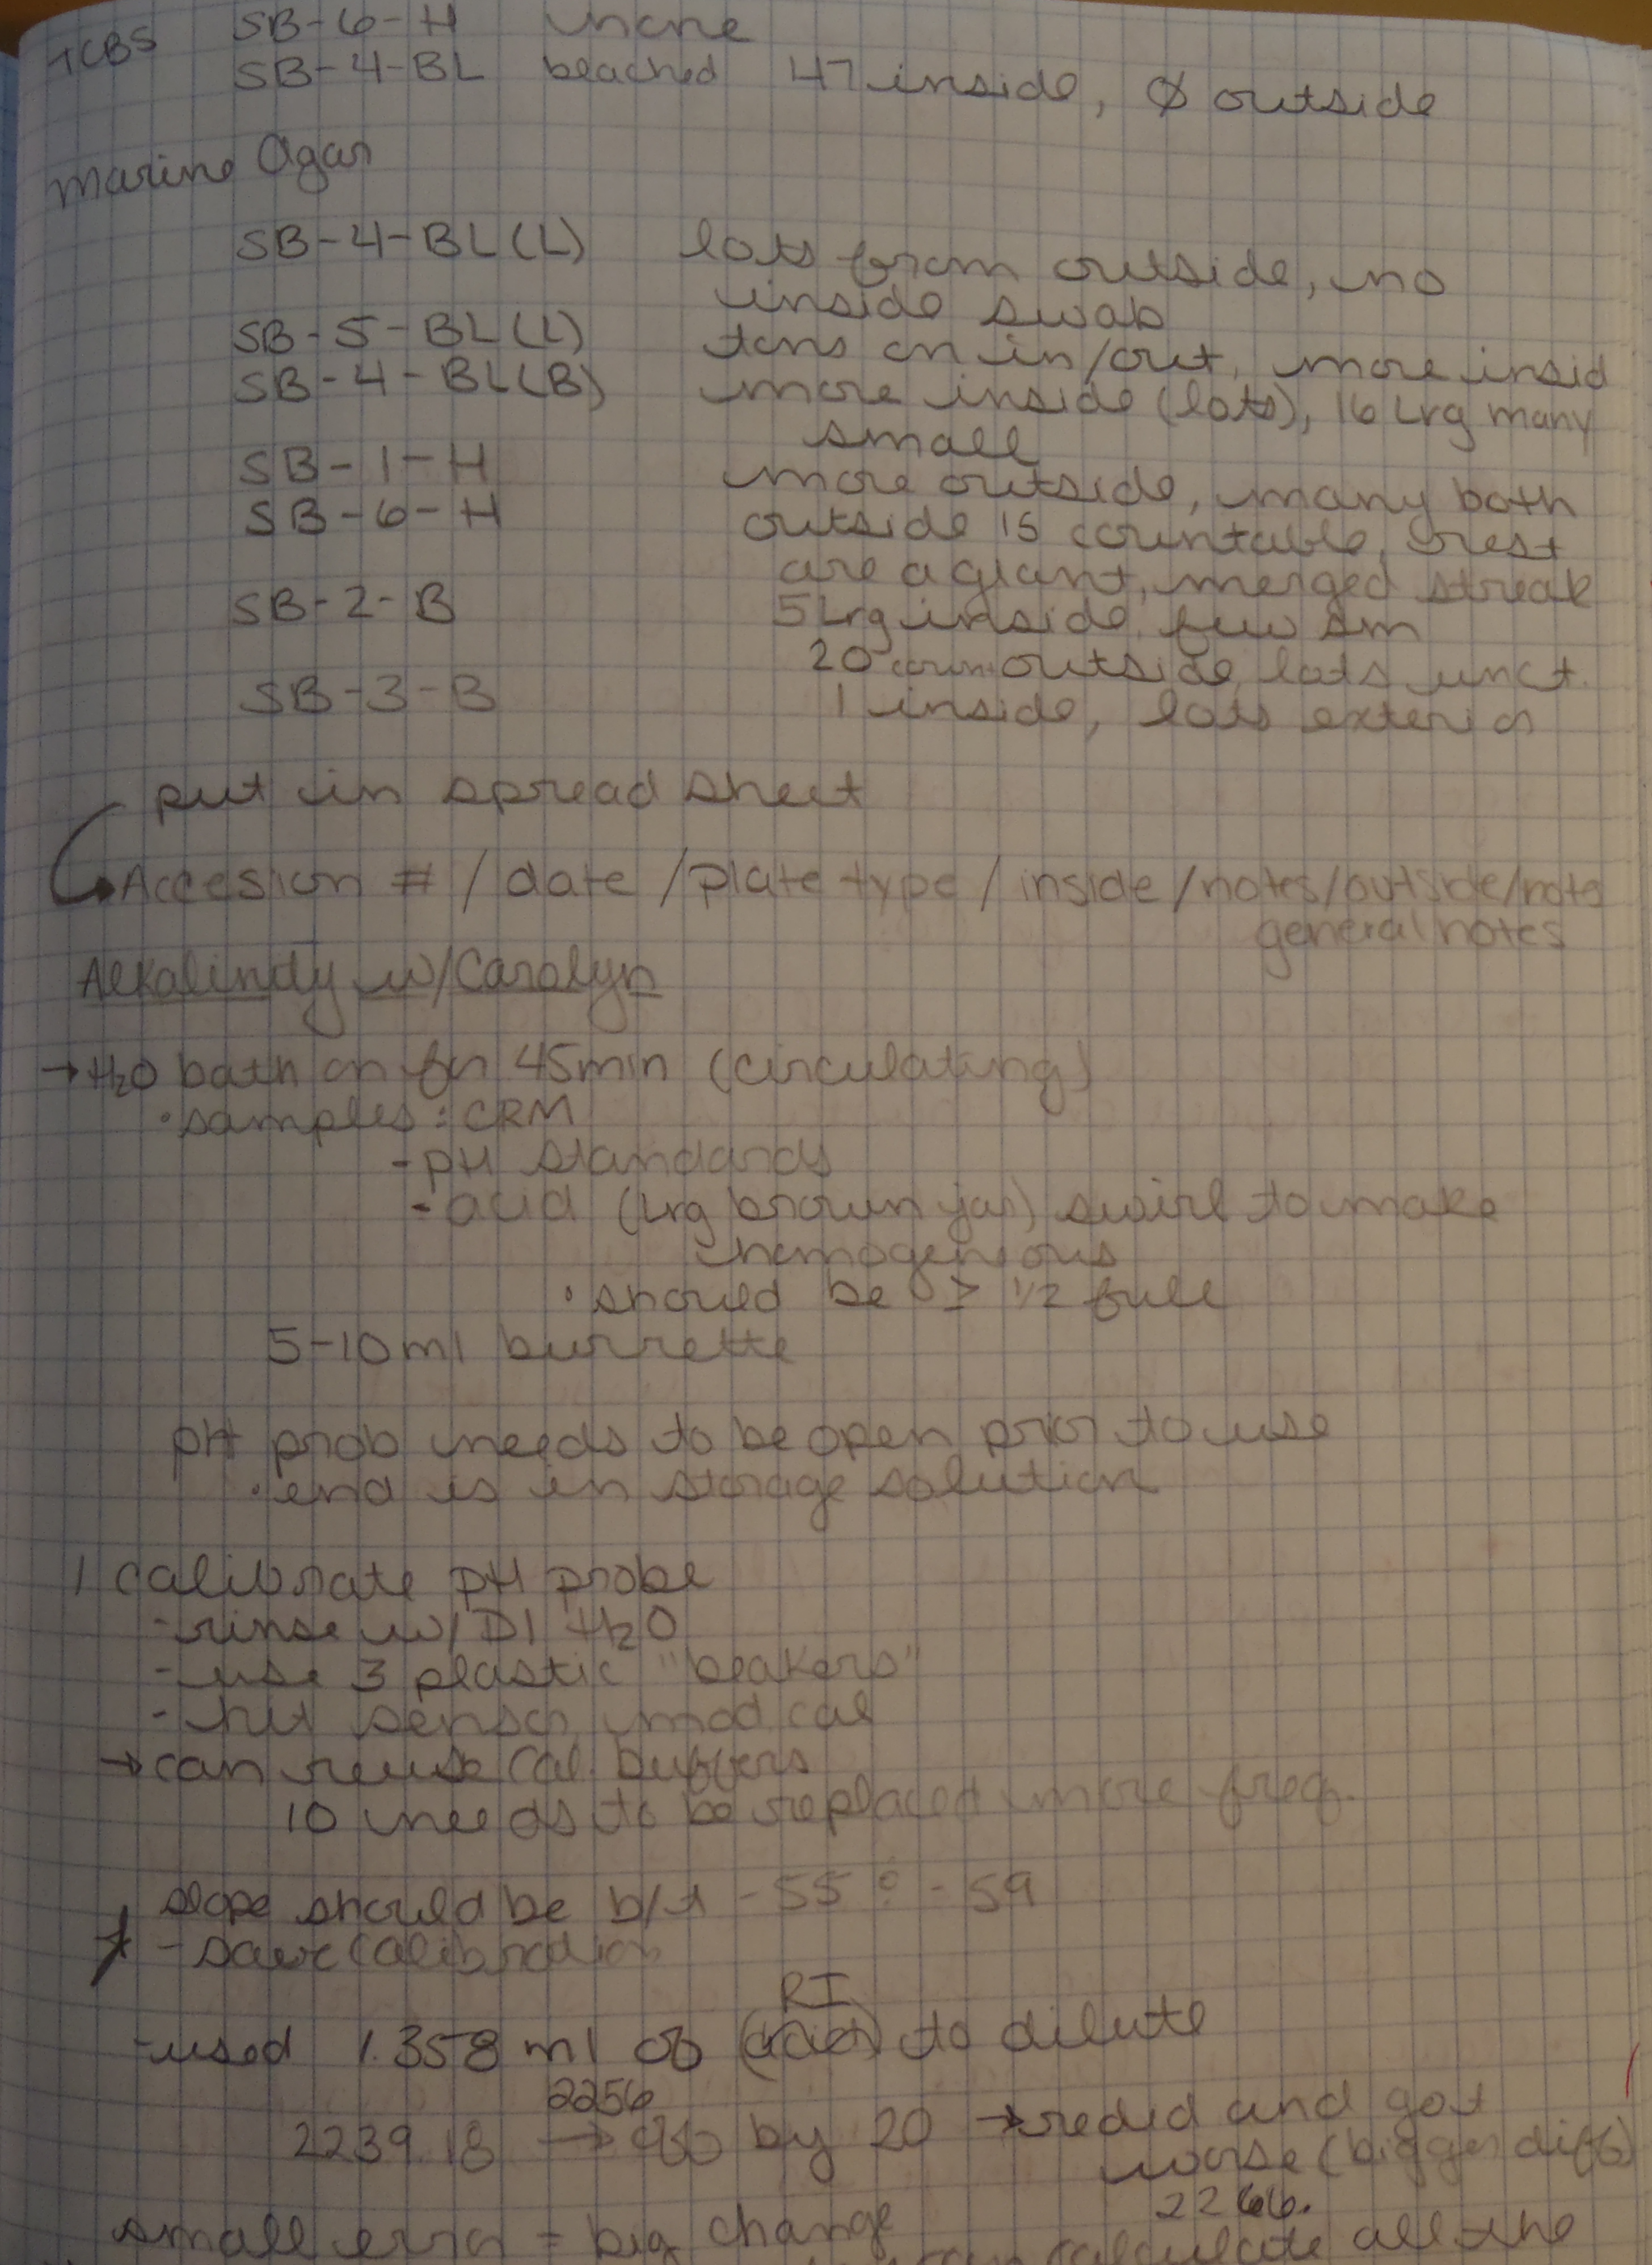 TCBS SB-6-H none
SB-4-BL beached 47 inside, Ø outside
Marine Agar
SB-4-BL(L) lots from outside, no
inside swab
SB-5-BL(L) tons on in/out, more insid
SB-4-BL(B) more inside (lots), 16 Lrg many
small
SB-1-H more outside, many both
SB-6-H outside 15 countable, rest
are a giant, merged streak
SB-2-B 5 Lrg inside, few sm
20 count outside, lots unct.
SB-3-B 1 inside, lots exterior
put in spread sheet
→ Accesion # / date / plate type / inside / notes / outside / notes
general notes
Alkalinity w/ Carolyn
→ H2O bath on for 45min (circulating)
• samples: CRM
- pH standards
- acid (Lrg brown jar) swirl to make
homogenious
• should be ≥ 1/2 full
5-10 ml burrette
pH prob needs to be open prior to use
• end is in storage solution
1 calibrate pH probe
- rinse w/ DI H2O
- use 3 plastic "beakers"
- hit sensor, mod cal
→ can reuse cal. buffers
10 needs to be replaced more freq.
slope should be b/t -55 : -59
* - save calibration
RI
- used 1.358 ml of to dilute
2256
2239.18 → off by 20 → redid and got
worse (bigger diff)
2266.
small error = big change
calculate all the